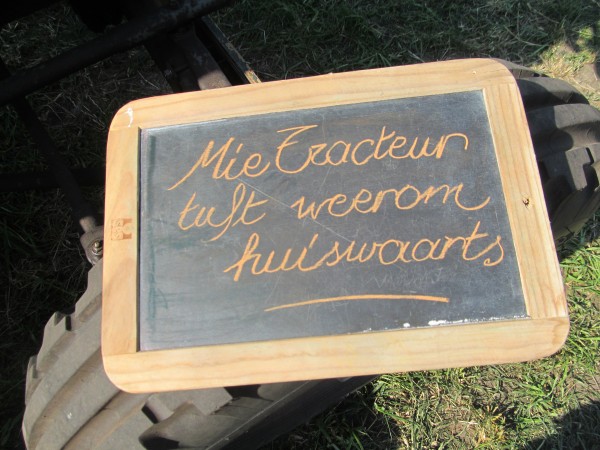 Mie Tracteur
tuft weerom
huiswaarts